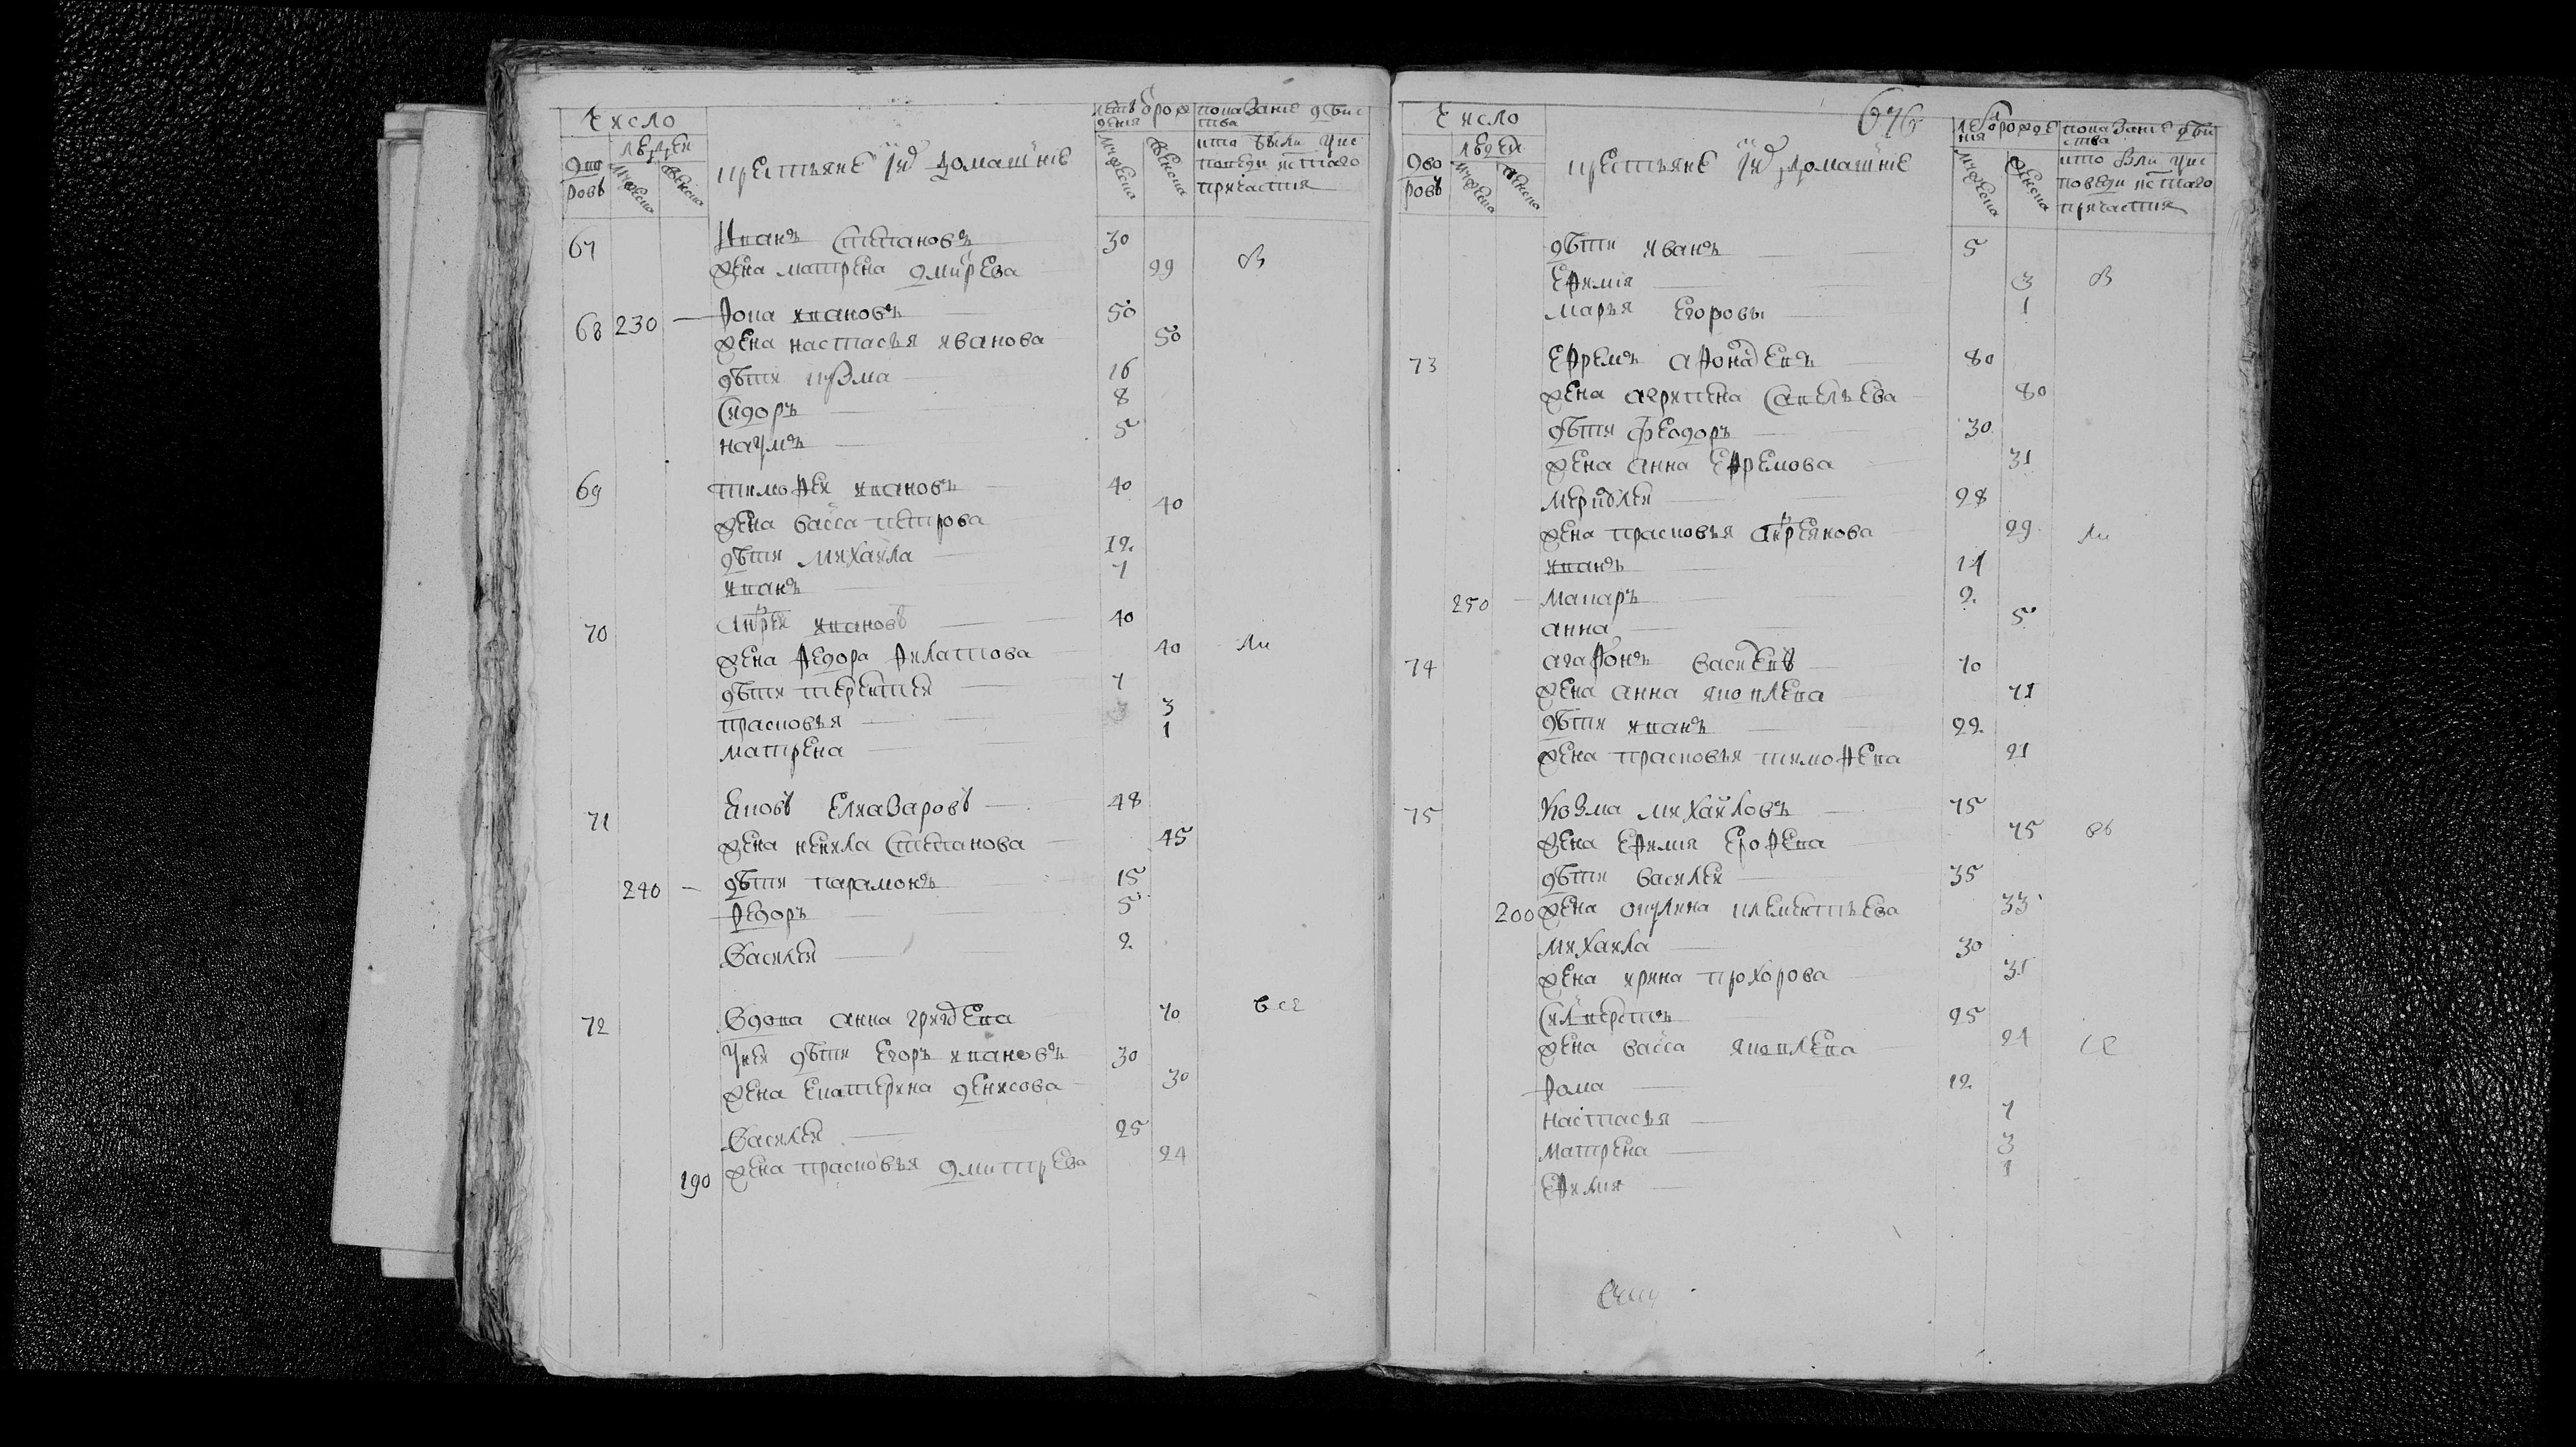 Число
людей
Дво
ровъ
мужеска
женска
крестьяне їихъ домашніе
летъ от рож
дения
мужеска
женска
показание действ
ства
кто были у ис
поведи и стаго
причастия
67 Иванъ Степановъ 30
жена матрена дмитрева 29
В
68 230 — Фока ивановъ 50
жена настасья иванова 50
дети кузма 16
Сидоръ 8
наумъ 5
69 тимофей ивановъ 40
жена васса петрова 40
дети михайла 12
иванъ 7
70 андрей ивановъ 40
жена федора филатова 40
ли
дети терентей 7
прасковья 3
матрена 1
71 Яковъ Елиазаровъ 48
жена ненила Степанова 45
240 — дети парамонъ 15
Федоръ 5
Василей 2
72 Вдова анна григорева 70
все
у ней дети Егоръ ивановъ 30
жена Екатерина денисова 30
Василей 25
190 жена прасковья дмитрева 24
676
Число
людей
Дво
ровъ
мужеска
женска
крестьяне їихъ домашніе
летъ от рожде
ния
мужеска
женска
показание действ
ства
кто были у ис
поведи и стаго
причастия
дети иванъ 5
Ефимия 3
В
марья Егоровы 1
73 Ефремъ афонасевъ 80
жена агрипена Савельева 80
дети феодоръ 30
жена анна Ефремова 31
меркулей 28
жена прасковья андреянова 29
ли
иванъ 14
250 — макаръ 2
анна 5
74 агафонъ васильевъ 70
жена анна яковлева 71
дети иванъ 22
жена прасковья тимофева 21
75 Козма михайловъ 75
жена Ефимия Ерофева 75
дети василей 35
200 жена окулина клементьева 33
михайла 30
жена ирина прохорова 31
Силиверстъ 25
жена васса яковлева 24
се
фома 12
настасья 7
матрена 3
Ефимия 1